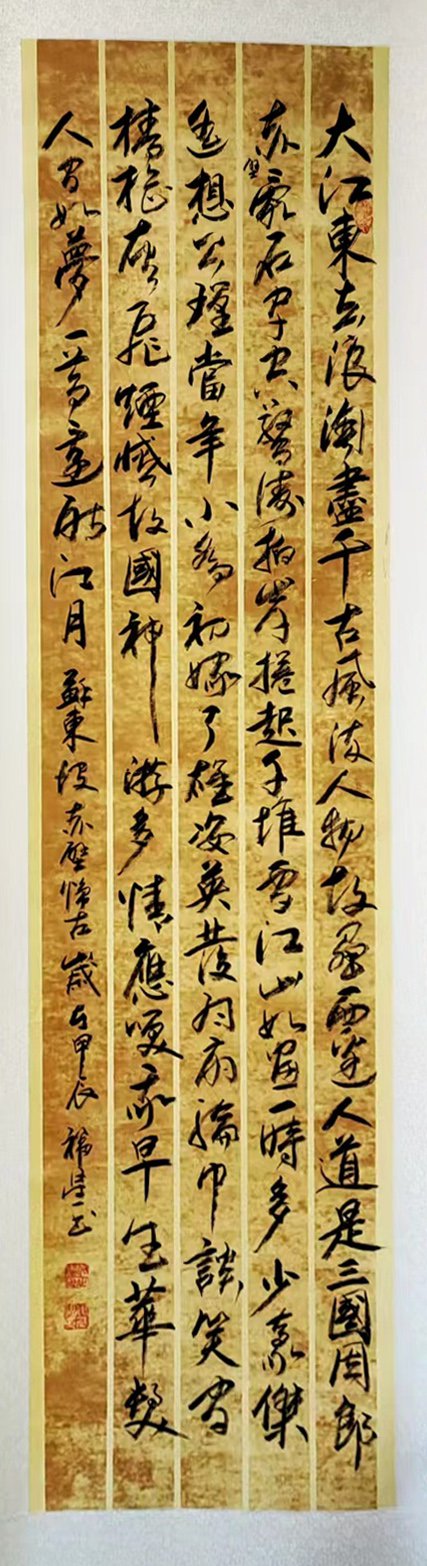 大江東去浪淘盡千古風流人物故壘西邊人道是三國周郎
赤壁亂石穿空驚濤拍岸捲起千堆雪江山如畫一時多少豪傑
遙想公瑾當年小喬初嫁了雄姿英發羽扇綸巾談笑間
檣櫓灰飛煙滅故國神游多情應笑我早生華髮
人間如夢一尊還酹江月 蘇東坡赤壁懷古歲在甲辰